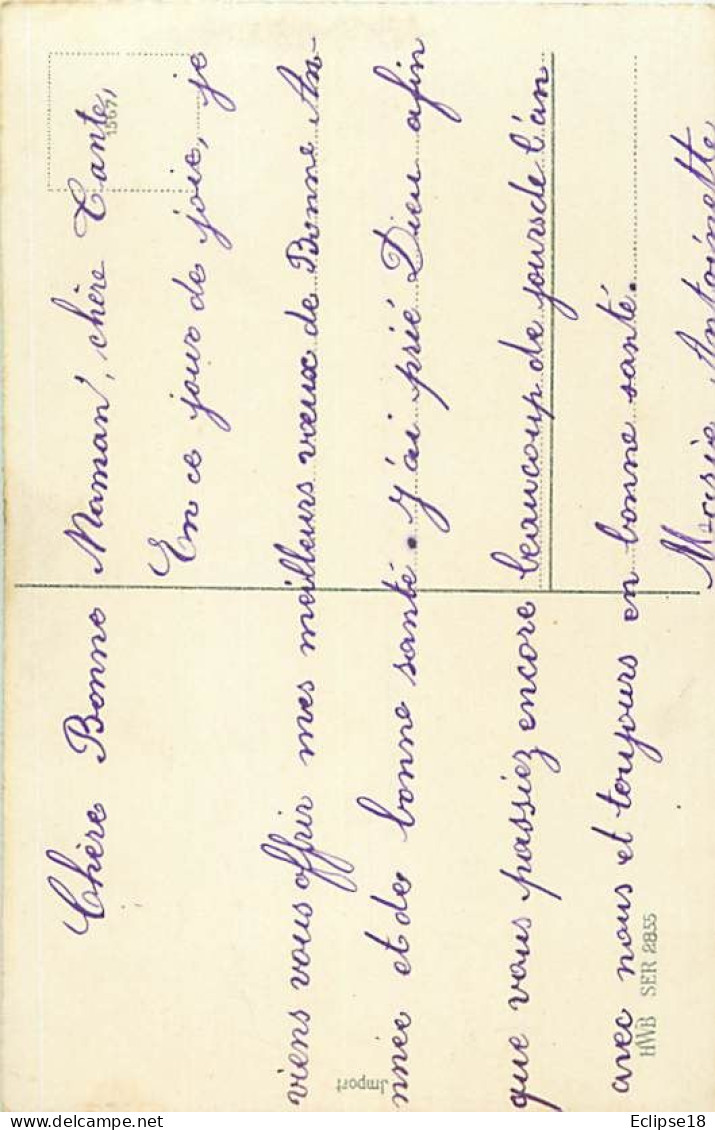 Chère Bonne Maman, chère Tante,
En ce jour de joie, je
viens vous offrir mes meilleurs vœux de Bonne An-
née et de bonne santé. J'ai prié Dieu afin
que vous passiez encore beaucoup de jours de l'an
avec nous et toujours en bonne santé.
Marie Antoinette
15671
HWB SER 2855
Import
www.delcampe.net
Eclipse18